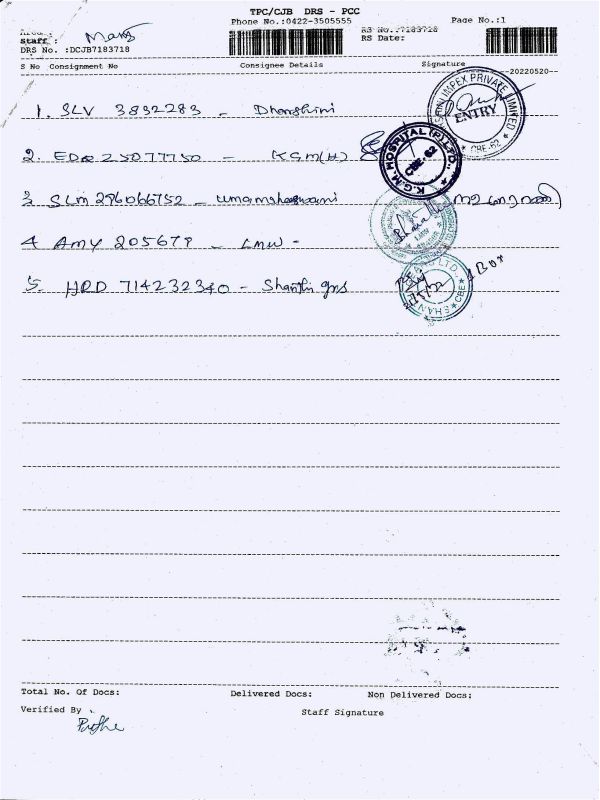 TPC/CJB DRS - PCC
Phone No.:0422-3505555
Page No.:1
Area :
RS No.:7183718
Staff :
RS Date:
DRS No. :DCJB7183718
S No Consignment No Consignee Details Signature
20220520
1. SLV 3832283 - Dhanshini
IMPEX PRIVATE LIMITED
ENTRY
CBE-62
2. 25077750 - KGM(H)
K.G.M. HOSPITAL (P) LTD.
CBE-62
3. SLM 296066752 -
4. AMY 205678 - LMW -
5. HRD 714232340 - Shanthi gns
1 Box
LTD.
CBE
Total No. Of Docs: Delivered Docs: Non Delivered Docs:
Verified By Staff Signature